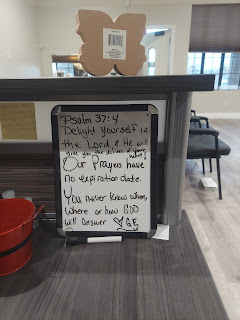 Psalm 37:4
Delight yourself in
the Lord, & He will
give you the desires of your
heart!
Our Prayers have
no expiration date.
You never know when,
where or how GOD
will answer ♡ G.E.